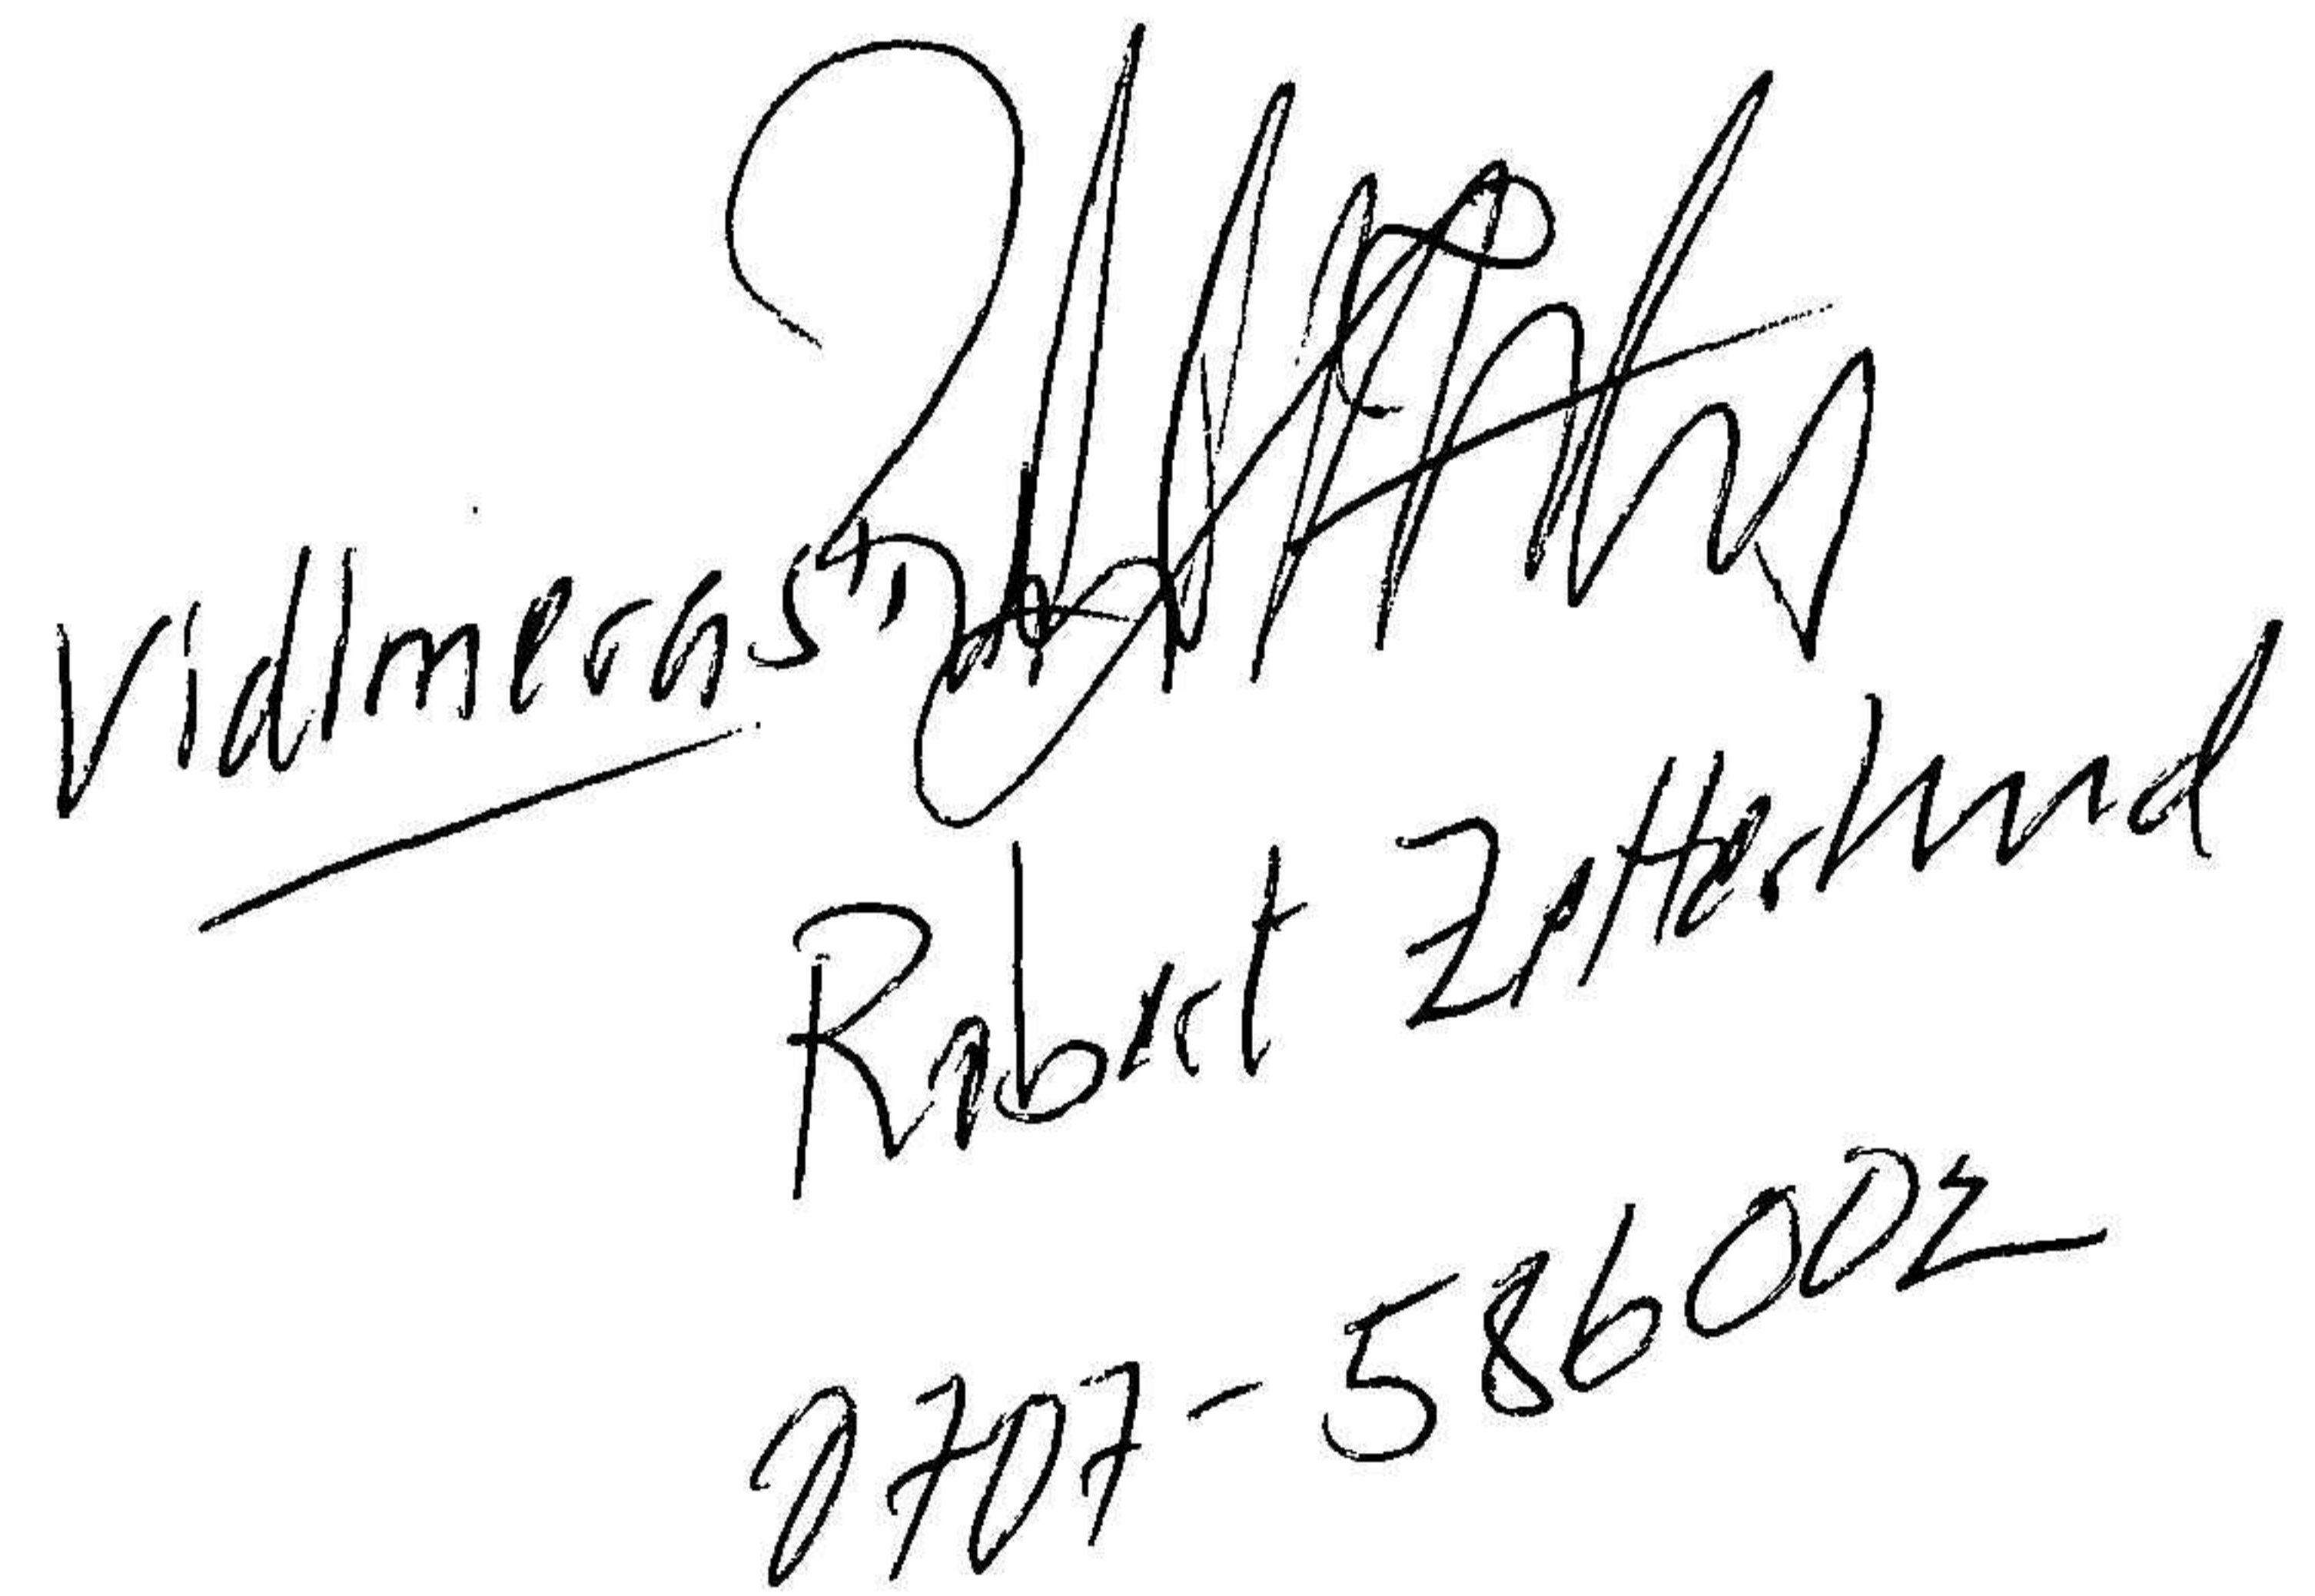 Vidimeras
Robert Zetterlund
0707-586002